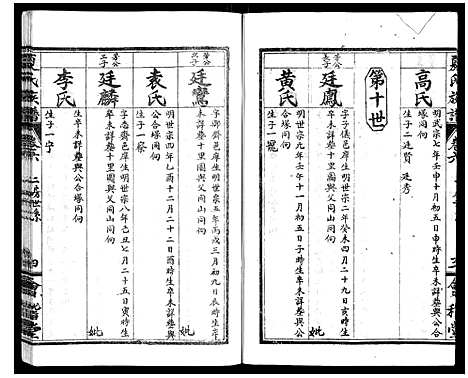 高氏
明武宗七年壬申十月初五日申時生卒未詳塟與公合
塔同向
生子二廷賢 廷秀
第十世
芳公
長子
廷鳳
字子儀邑庠生明世宗二年癸未四月二十五日
卒未詳塟十里圍與父同山同向 妣
黃氏
明世宗九年壬十一月初五日子時生卒未詳塟與公
合塔同向
生子一
芳公
次子
廷鸞
明世宗五年丙戌三月初九日辰時生
卒未詳塟十里圍與父同山同向 妣
袁氏
明世宗四年乙酉十二月二十二日酉時生卒未詳塟與
公合塔同向
生子一
芳公
三子
廷麟
字志齋邑庠生明世宗八年己丑七月二十五日寅時生
卒未詳塟十里圍與父同山同向 妣
李氏
生卒未詳塟與公合塔同向
生子一字
夏氏族譜
卷六
二房世系
四
會稽堂